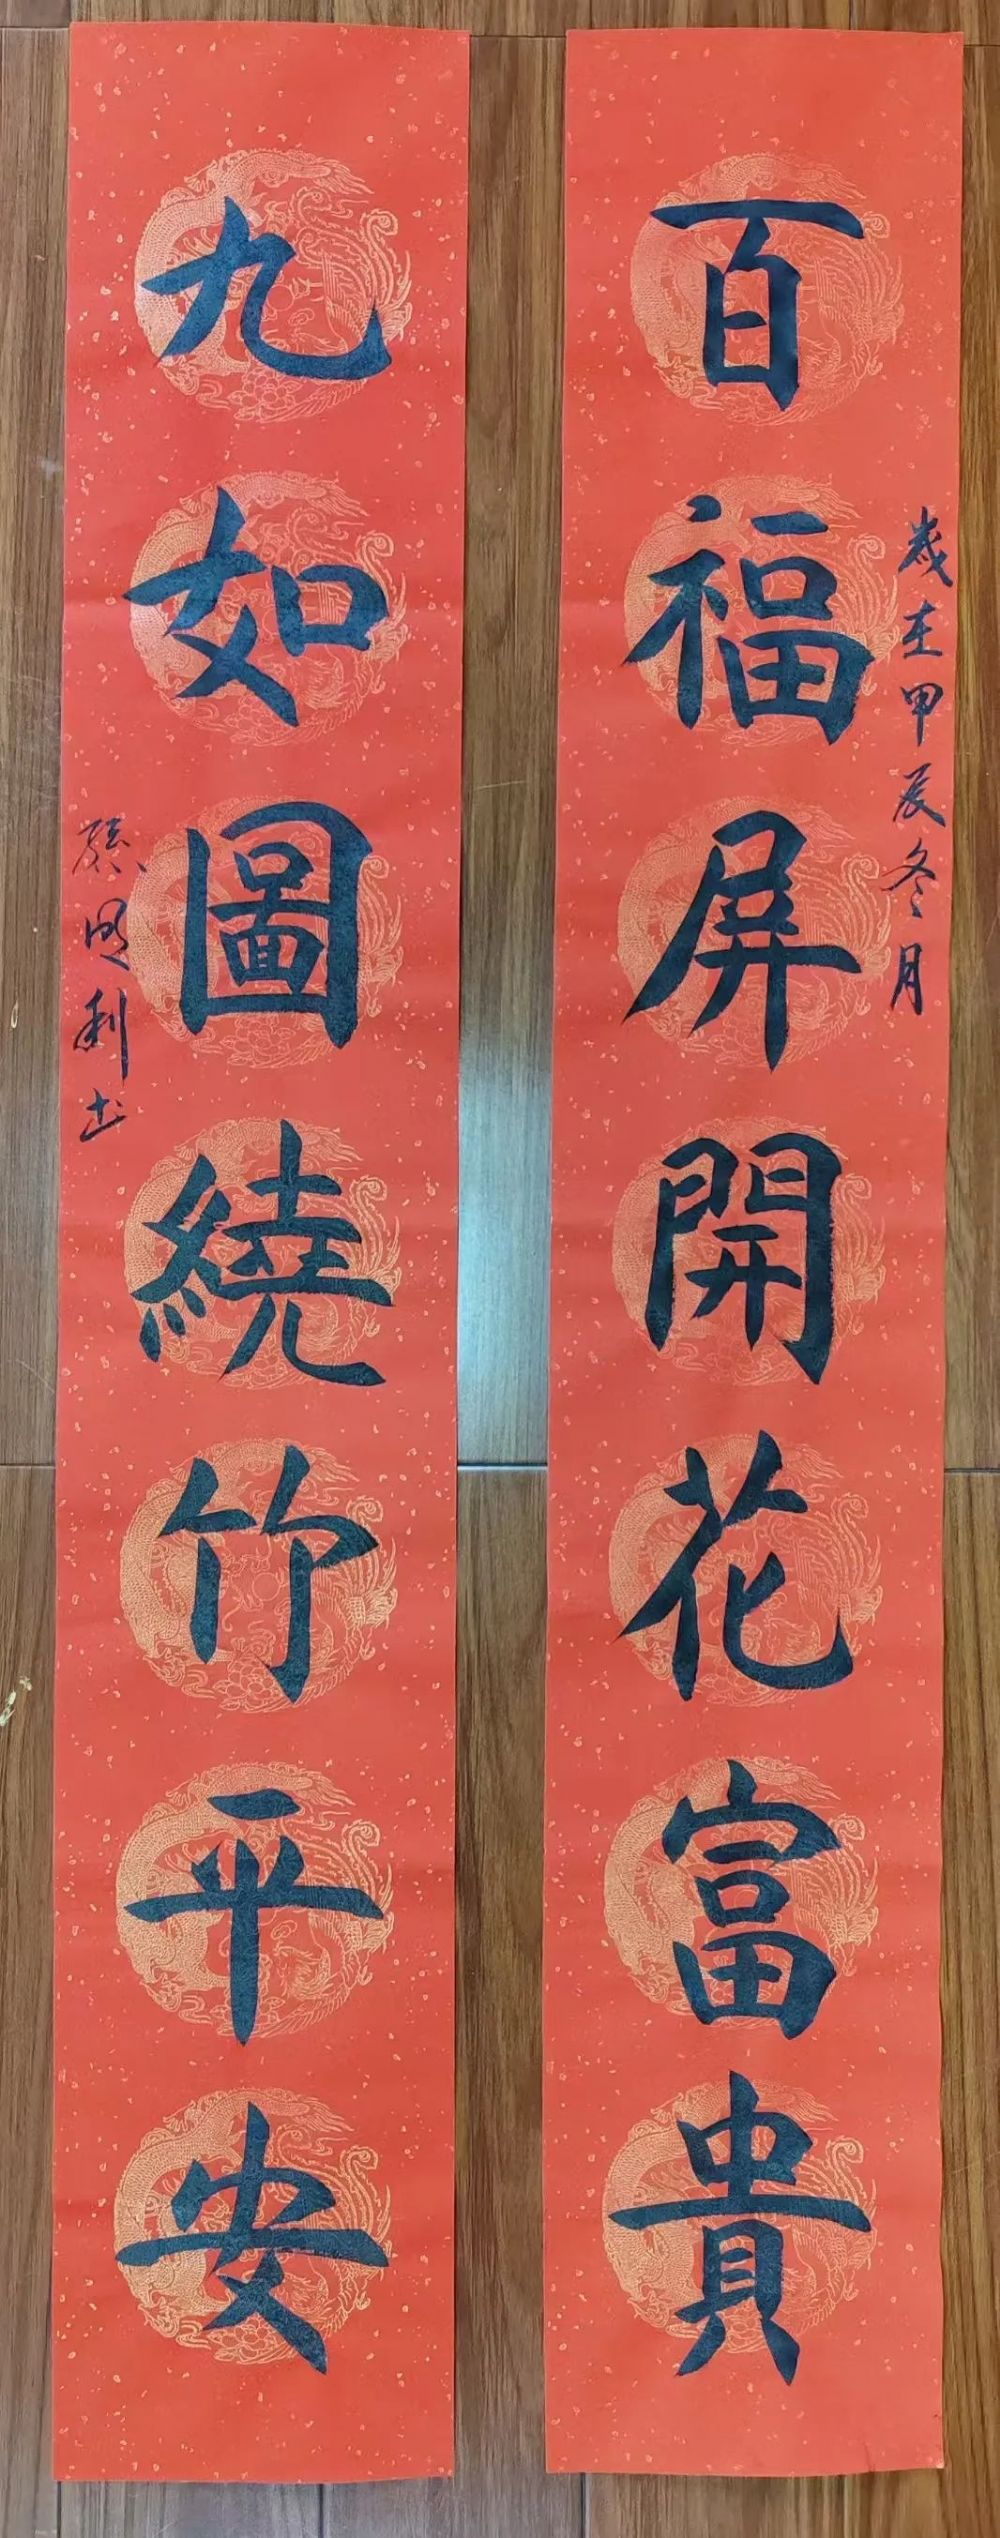 百福屏開花富貴
歲在甲辰冬月
九如圖繞竹平安
明利书